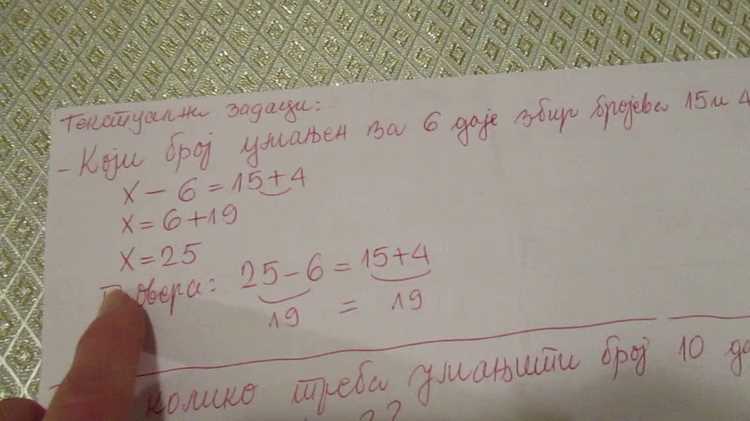 Текстуални задаци:
- Који број умањен за 6 даје збир бројева 15 и 4
x - 6 = 15 + 4
x = 6 + 19
x = 25
Провера: 25 - 6 = 15 + 4
19 = 19
колико треба умањити број 10 да